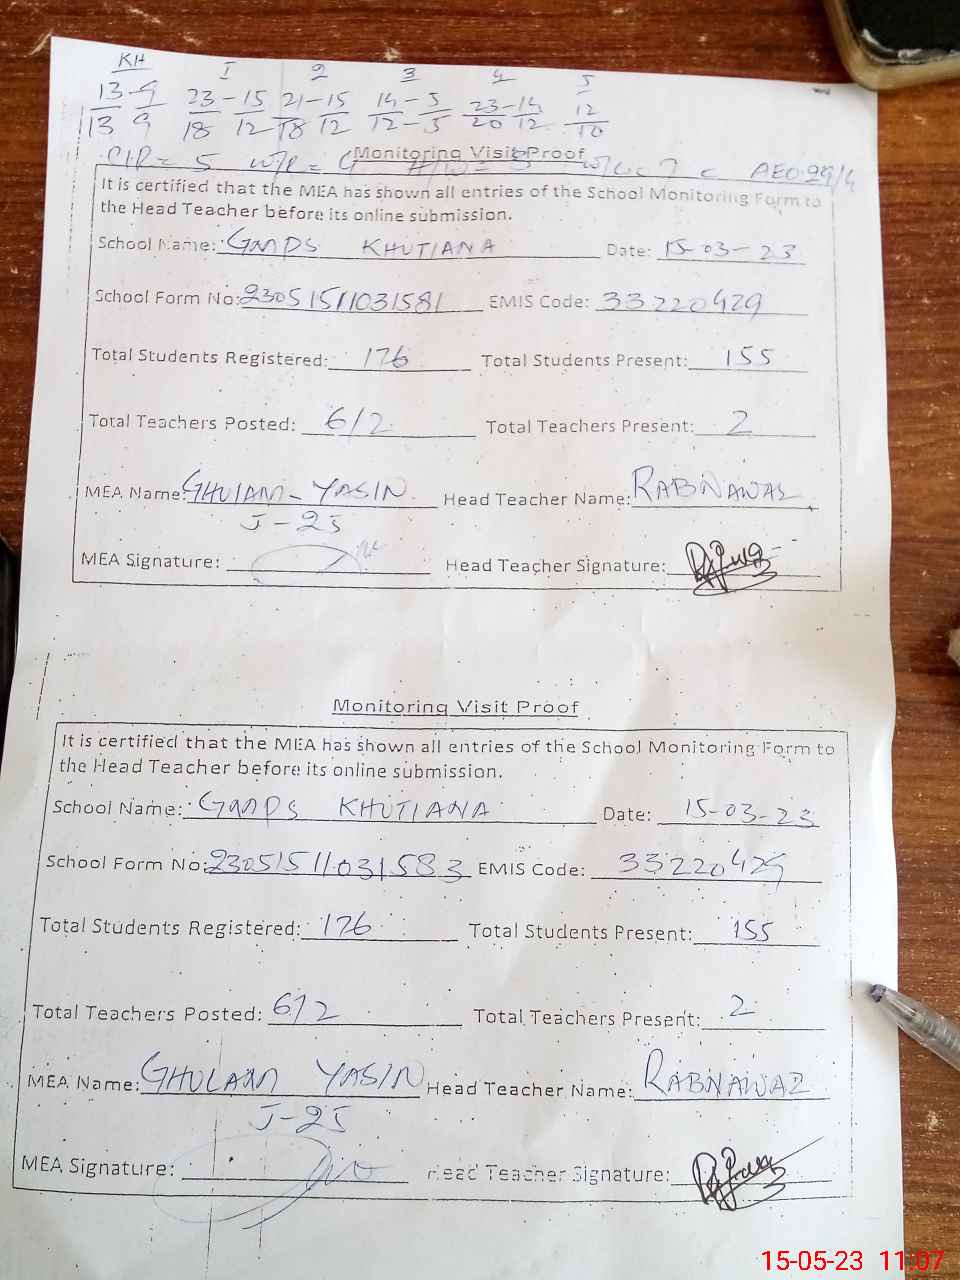 KH I 2 3 4 5
13-9 23-15 21-15 14-5 23-14 12
13 9 18 12 18 12 12-5 20 12 10
CIR= 5 W/R= Monitoring Visit Proof AEO-29/4
It is certified that the MEA has shown all entries of the School Monitoring Form to
the Head Teacher before its online submission.
School Name: GMPS KHUTIANA Date: 15-03-23
School Form No: 23051511031581 EMIS Code: 33220429
Total Students Registered: 176 Total Students Present: 155
Total Teachers Posted: 6/2 Total Teachers Present: 2
MEA Name: GHULAM-YASIN Head Teacher Name: RABNAWAZ
J-25
MEA Signature: Head Teacher Signature:
Monitoring Visit Proof
It is certified that the MEA has shown all entries of the School Monitoring Form to
the Head Teacher before its online submission.
School Name: GMPS KHUTIANA Date: 15-03-23
School Form No: 23051511031583 EMIS Code: 33220429
Total Students Registered: 176 Total Students Present: 155
Total Teachers Posted: 6/2 Total Teachers Present: 2
MEA Name: GHULAM YASIN Head Teacher Name: RABNAWAZ
J-25
MEA Signature: Head Teacher Signature:
15-05-23 11:07